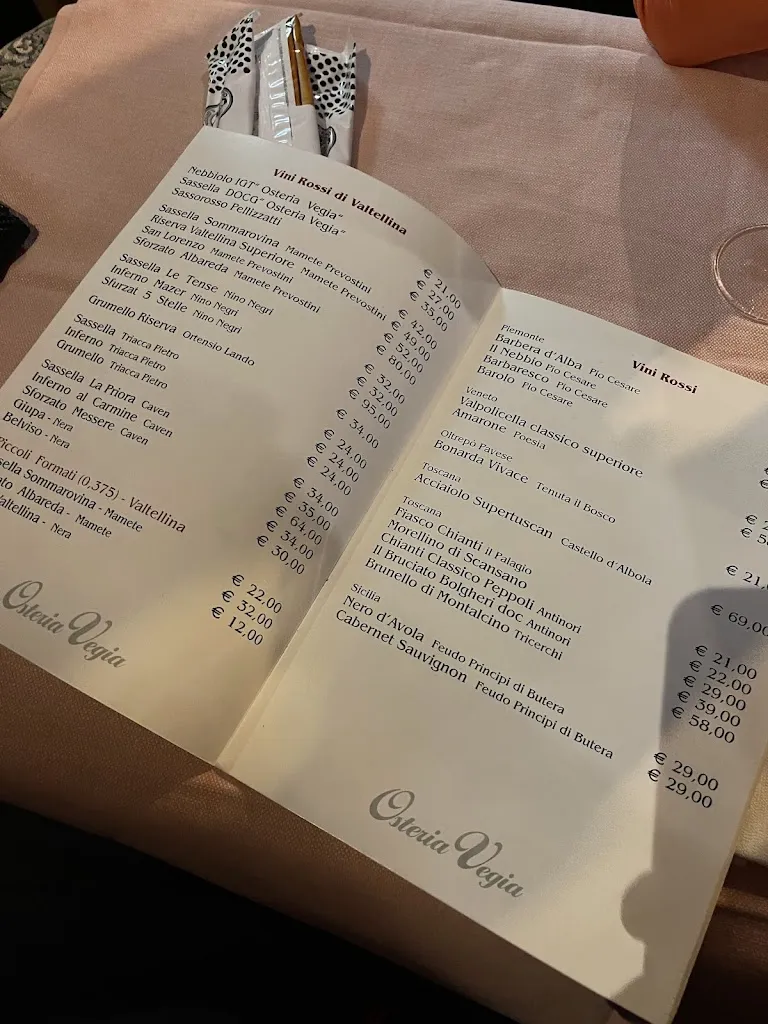 Vini Rossi di Valtellina
Nebbiolo IGT" Osteria Vegia" € 21,00
Sassella DOCG" Osteria Vegia" € 27,00
Sassorosso Pellizzatti € 35,00
Sassella Sommarovina Mamete Prevostini € 42,00
Riserva Valtellina Superiore Mamete Prevostini € 49,00
San Lorenzo Mamete Prevostini € 52,00
Sforzato Albareda Mamete Prevostini € 80,00
Sassella Le Tense Nino Negri € 32,00
Inferno Mazer Nino Negri € 32,00
Sfurzat 5 Stelle Nino Negri € 95,00
Grumello Riserva Ortensio Lando € 34,00
Sassella Triacca Pietro € 24,00
Inferno Triacca Pietro € 24,00
Grumello Triacca Pietro € 24,00
Sassella La Priora Caven € 34,00
Inferno al Carmine Caven € 35,00
Sforzato Messere Caven € 64,00
Giupa - Nera € 34,00
Belviso - Nera € 30,00
Piccoli Formati (0,375) - Valtellina
Sommarovina - Mamete € 22,00
Albareda - Mamete € 32,00
Valtellina - Nera € 12,00
Osteria Vegia
Vini Rossi
Piemonte
Barbera d'Alba Pio Cesare
Il Nebbio Pio Cesare
Barbaresco Pio Cesare
Barolo Pio Cesare
Veneto
Valpolicella classico superiore €
Amarone Poesia €
Oltrepò Pavese
Bonarda Vivace Tenuta il Bosco € 21,
Toscana
Acciaiolo Supertuscan Castello d'Albola € 69,00
Toscana
Fiasco Chianti il Palagio € 21,00
Morellino di Scansano € 22,00
Chianti Classico Peppoli Antinori € 29,00
Il Bruciato Bolgheri doc Antinori € 39,00
Brunello di Montalcino Tricerchi € 58,00
Sicilia
Nero d'Avola Feudo Principi di Butera € 29,00
Cabernet Sauvignon Feudo Principi di Butera € 29,00
Osteria Vegia